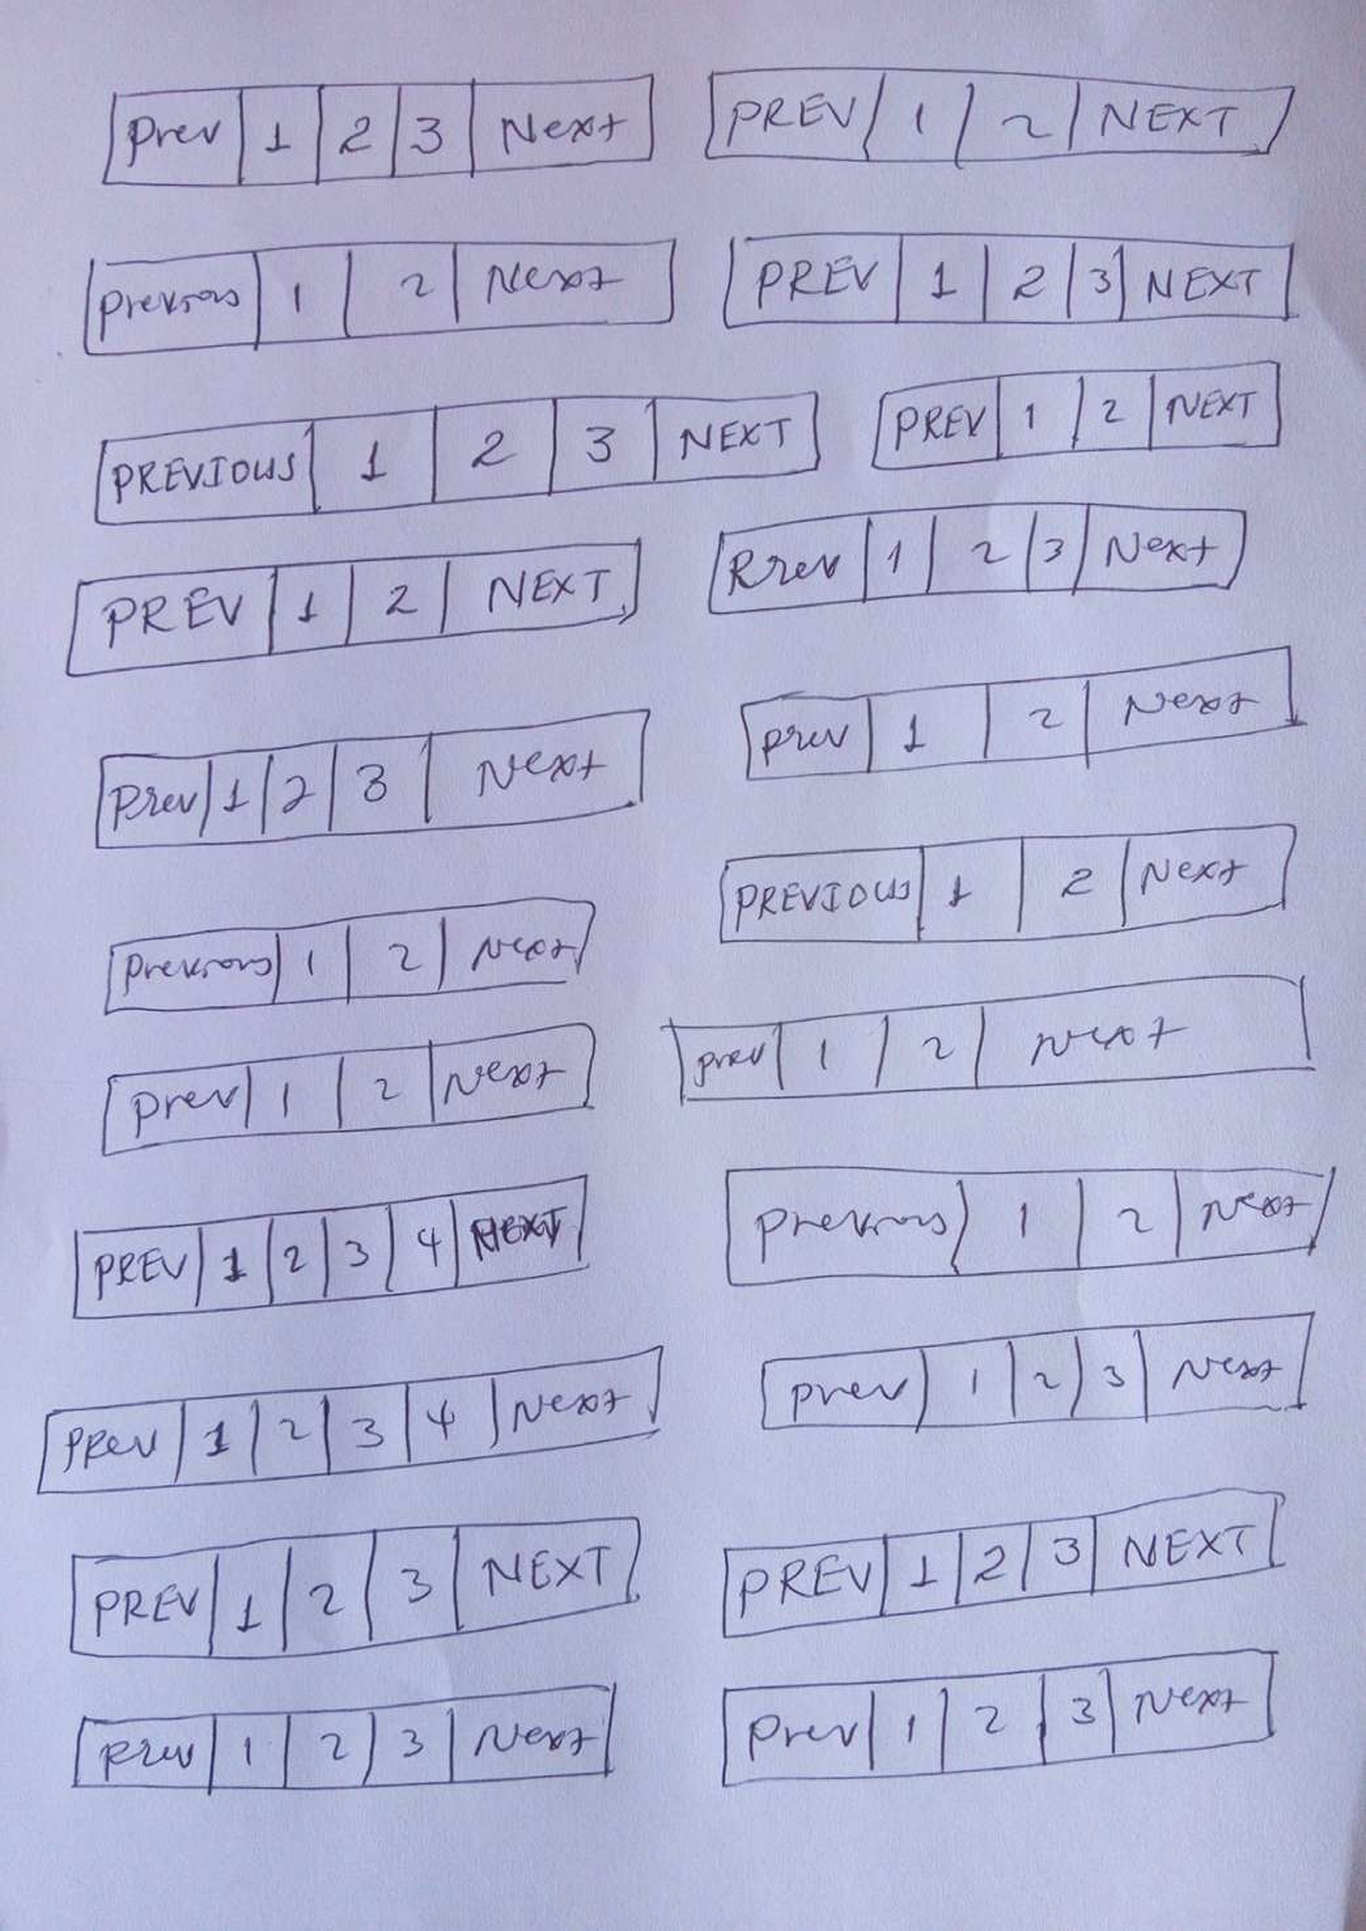 Prev 1 2 3 Next
PREV 1 2 NEXT
Previous 1 2 Next
PREV 1 2 3 NEXT
PREVIOUS 1 2 3 NEXT
PREV 1 2 NEXT
PREV 1 2 NEXT
Rrev 1 2 3 Next
Prev 1 2 3 Next
prev 1 2 Next
Previous 1 2 Next
PREVIOUS 1 2 Next
prev 1 2 Next
prev 1 2 Next
PREV 1 2 3 4 NEXT
Previous 1 2 Next
PRev 1 2 3 4 Next
prev 1 2 3 Next
PREV 1 2 3 NEXT
PREV 1 2 3 NEXT
prev 1 2 3 Next
Prev 1 2 3 Next